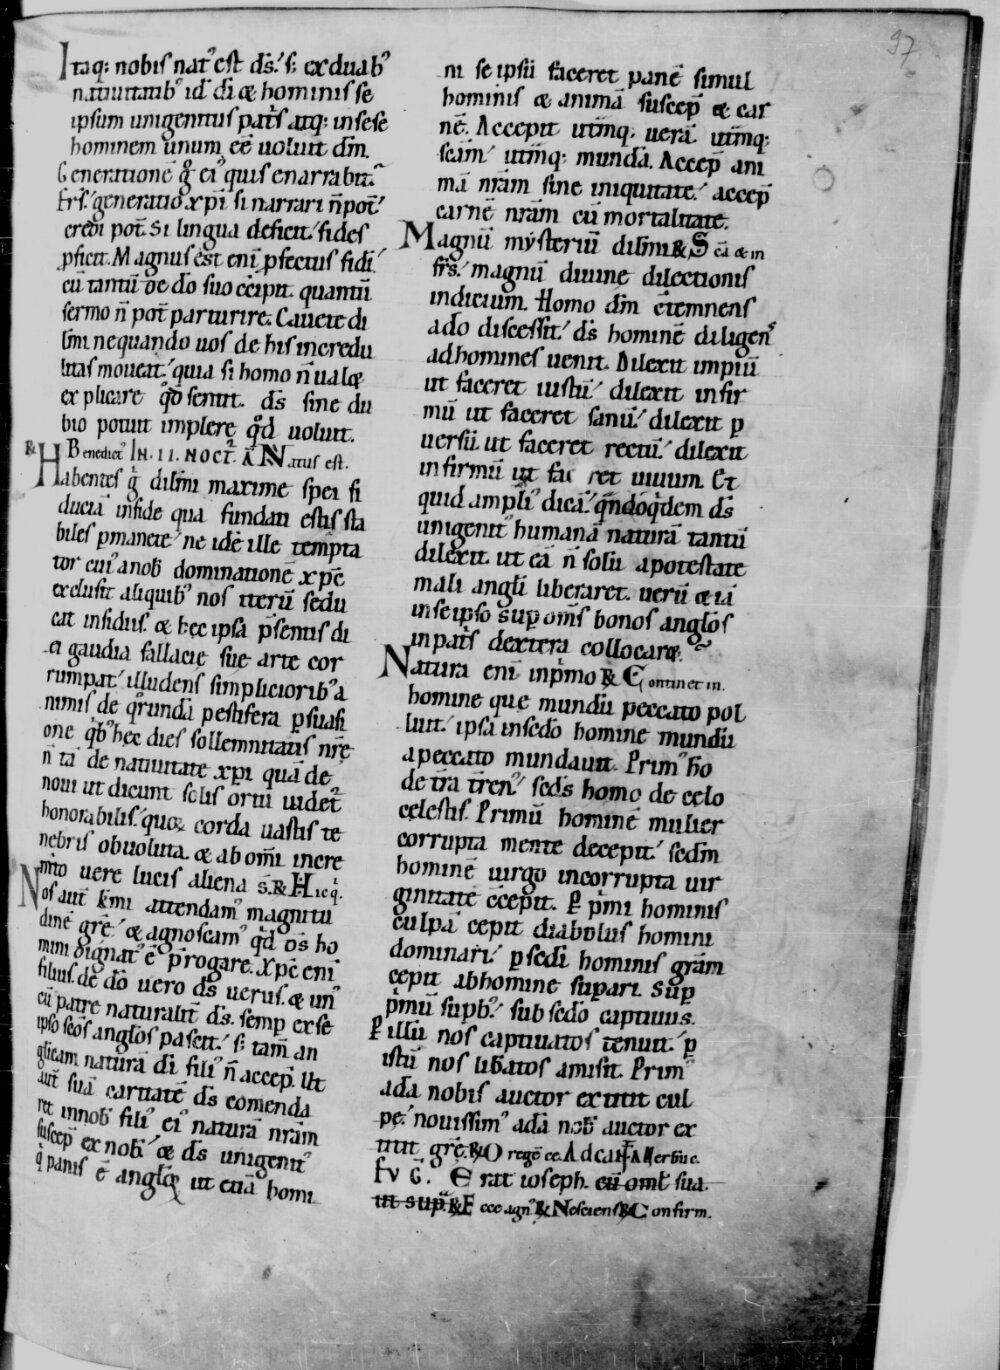 97
Itaq; nobis nat᾽ est ds̄. s; ex duab᾽
natiuitatib᾽ id᾽ di & hominis se
ipsum unigenitus pat̄s atq; in sese
hominem unum eē uoluit dm̄.
Generationē g̊ ei᾽ quis enarrabit.
Frs̄. generatio xp̄i si narrari n̄ pot̄.
credi pot̄. Si lingua deficit. fides
ꝓficit. Magnus est eni ꝑfectus fidi
cū tantū de dō suo c̄cipit. quantū
sermo n̄ pot̄ parturire. Cauete di
lm̄i ne quando uos de his incredu
litas moueat. quia si homo n̄ ualꝫ
explicare q̄d sentit. ds̄ sine du
bio potuit implere q̄d uoluit.
℟ Benedict᾽ IN . II . NOCT̄. A᷃ Natus est.
Habentes g̊ dilm̄i maxime spei fi
duciā in fide qua fundati estis sta
biles ꝑmanete. ne idē ille tempta
tor cui᾽ a nob̄ dominationē xp̄c
exclusit aliquib᾽ nos iterū sedu
cat insidiis. & hec ipsa p̄sentis di
ei gaudia fallacie sue arte cor
rumpat. illudens simpliciorib᾽ a
nimis de q̄rundā pestifera ꝑsuasi
one q̄b᾽ hec dies sollemnitatis nr̄e
n̄ tā de natiuitate xp̄i quā de
noui ut dicunt solis ortu uidet᾽
honorabilis. quoꝝ corda uastis te
nebris obuoluta. & ab om̄i incre
m̄to uere lucis aliena s̄. ℟ Hic q̇.
Nos aut̄ km̄i attendam᾽ magnitu
dinē grē. & agnoscam᾽ q̄d ds̄ ho
mini dignat᾽ ē p̄rogare. Xp̄c eni
filius. de dō uero ds̄ uerus. & un᾽
cū patre naturalit̄ ds̄. semꝑ ex se
ipso sc̄os anglos pascit. s; tam̄ an
glicam naturā di fili᾽ n̄ accep̄. Ut
aut̄ suā caritatē ds̄ comenda
ret in nob̄ fili᾽ ei᾽ naturā nrām
suscep̄ ex nob̄. & ds̄ unigenit᾽
q̇ panis ē angloꝝ ut etiā homi
ni se ipsū faceret panē simul
hominis & animā suscep̄ & car
nē. Accepit utr̄mq; uerā. utr̄mq;
sc̄am. utr̄mq; mundā. Accep̄ ani
mā nrām sine iniquitate. accep̄
carnē nrām cū mortalitate.
Magnū mysteriū dilm̄i ℟ Sc̄a & in
frs̄. magnū diuine dilectionis
indicium. Homo dm̄ c̄temnens
a dō discessit. ds̄ hominē diligens
ad homines uenit. Dilexit impiū
ut faceret iustū. dilexit infir
mū ut faceret sanū. dilexit ꝑ
uersū. ut faceret rectū. dilexit
infirmū ut fac ret uiuum. Et
quid ampli᾽ dicā. q̄ndoq̇dem ds̄
unigenit᾽ humanā naturā tantū
dilexit. ut eā n̄ solū a potestate
mali angli liberaret. uerū & iā
in se ipso suꝑ om̄s bonos anglos
in pat̄s dextera collocaret.
Natura eni in ṗmo ℟ Continet in.
homine que mundū peccato pol
luit. ipsa in sedo homine mundū
a peccato mundauit. Prim᾽ ho
de t̄ra t̄ren᾽. seds homo de celo
celestis. Primū hominē mulier
corrupta mente decepit. sedm
hominē uirgo incorrupta uir
ginitate c̄cepit. Ꝑ ṗmi hominis
culpā cepit diabolus homini
dominari. ꝑ sedi hominis grām
cepit ab homine suꝑari. Suꝑ
ṗmū supb᾽. sub sedo captiuus.
Ꝑ illū nos captiuatos tenuit. ꝑ
istū nos lib̄atos amisit. Prim᾽
adā nobis auctor extitit cul
pe. nouissim᾽ adā nob̄ auctor ex
titit grē. ℟ O regē ce. Ad cant̄. A᷃ Verbū c.
Erat ioseph. cū om̄t̄ sua.
ut sup̄. ℟ Ecce agn᾽ ℟ Nesciens ℟ Confirm.